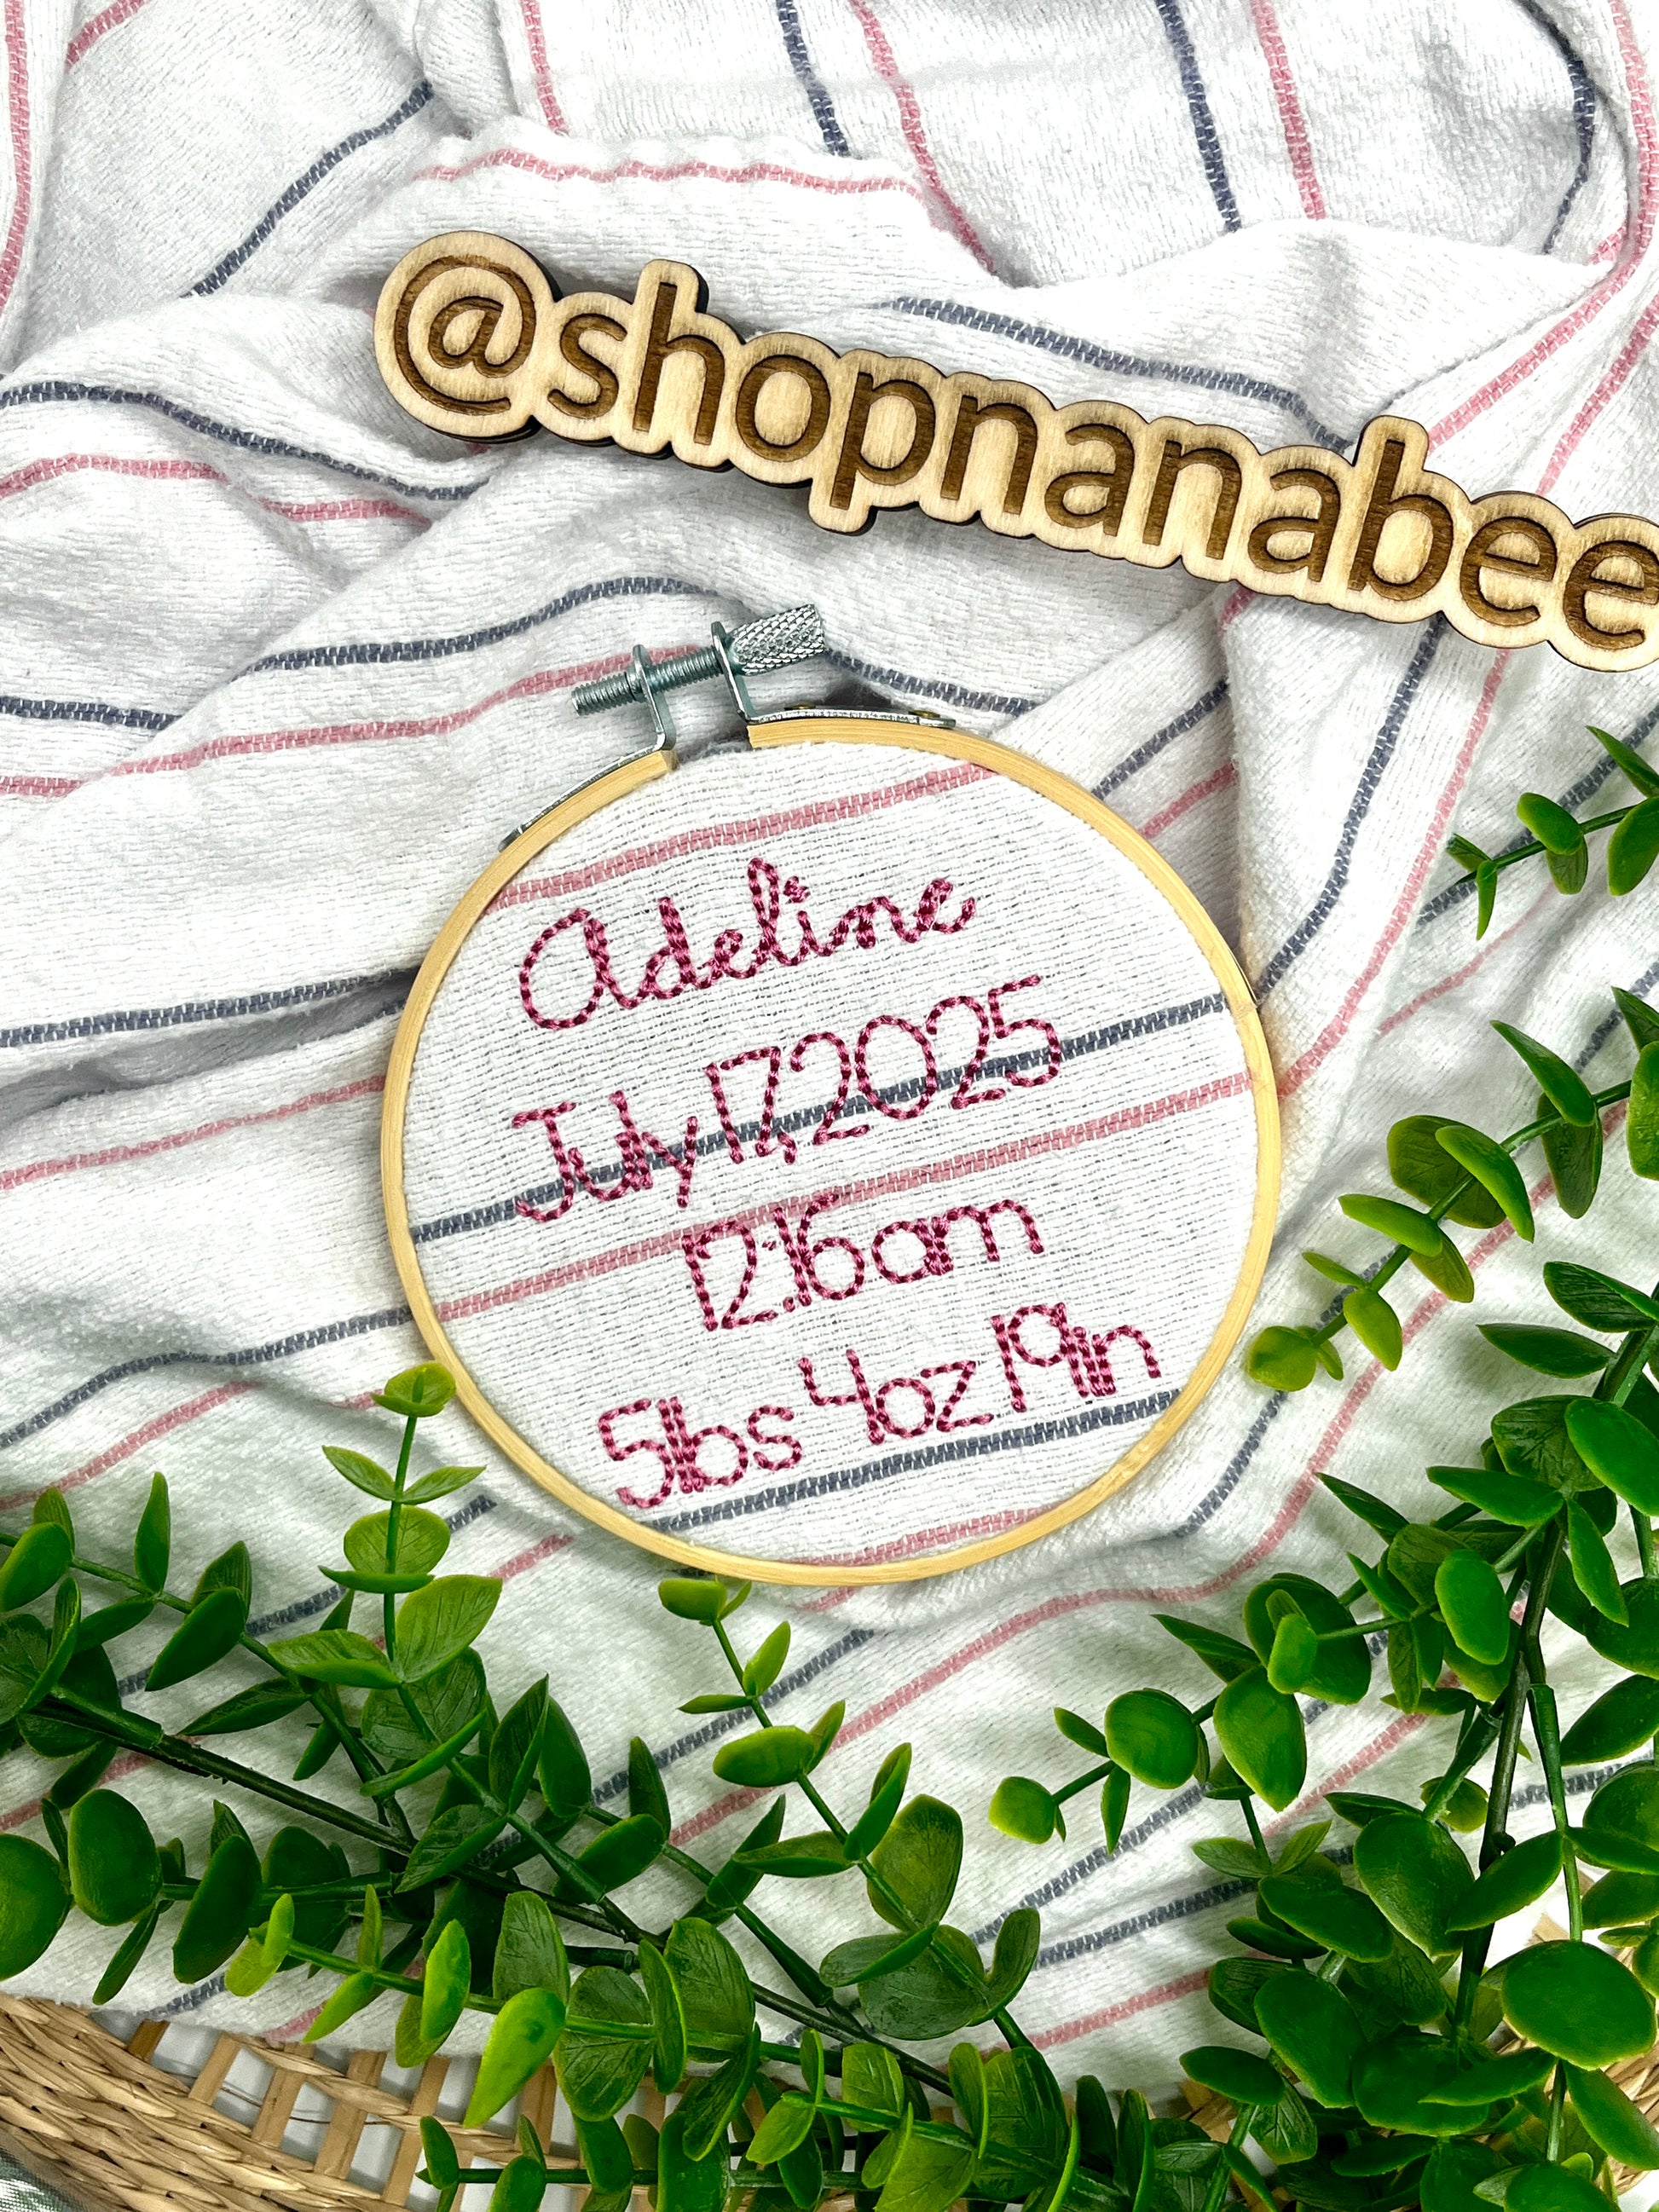 @shopnanabee
Adeline
July 17, 2025
12:16am
5lbs 4oz 19in